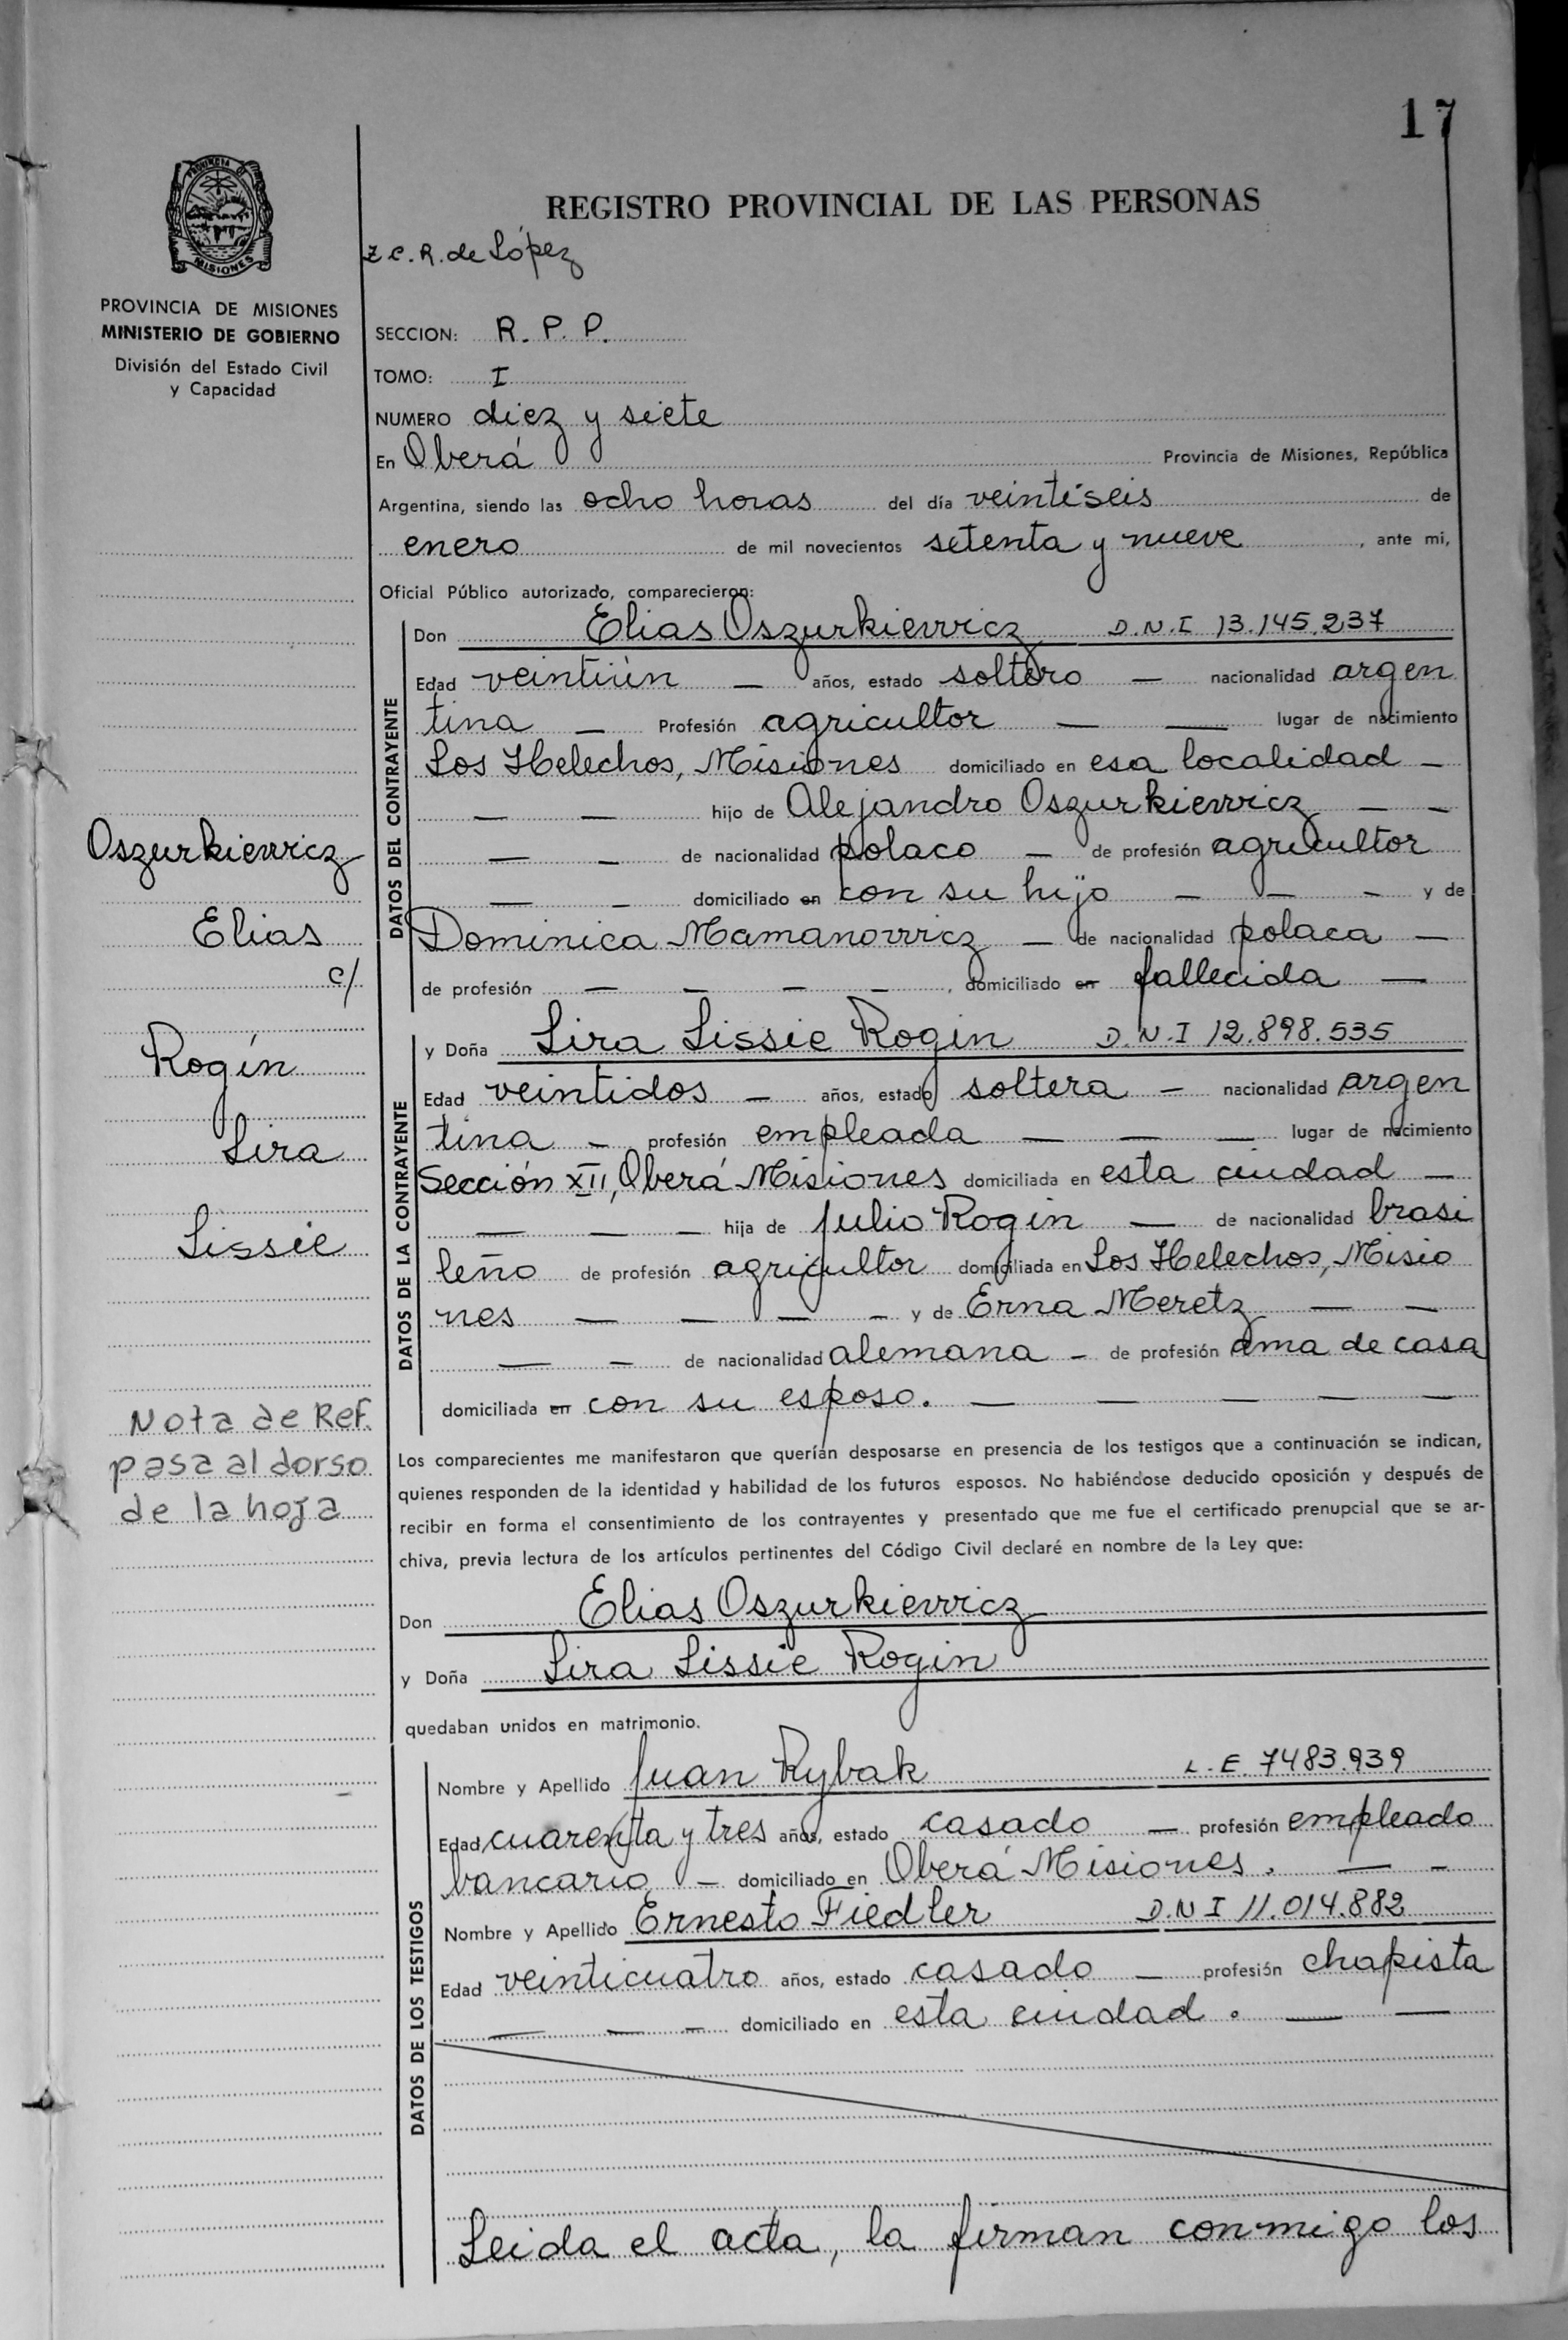 17
PROVINCIA DE
MISIONES
REGISTRO PROVINCIAL DE LAS PERSONAS
Z C. R. de López
PROVINCIA DE MISIONES
MINISTERIO DE GOBIERNO
División del Estado Civil
y Capacidad
SECCION: R. P. P.
TOMO: I
NUMERO diez y siete
En Oberá Provincia de Misiones, República
Argentina, siendo las ocho horas del día veintiseis de
enero de mil novecientos setenta y nueve, ante mi,
Oficial Público autorizado, comparecieron:
DATOS DEL CONTRAYENTE
Don Elias Oszurkiewicz D.N.I 13.145.237
Edad veintiún — años, estado soltero — nacionalidad argen
tina — Profesión agricultor — — lugar de nacimiento
Los Helechos, Misiones domiciliado en esa localidad —
— — hijo de Alejandro Oszurkiewicz — —
— — de nacionalidad polaco — de profesión agricultor
— — domiciliado en con su hijo — — — y de
Dominica Mamanowicz — de nacionalidad polaca —
de profesión — — — —, domiciliado en fallecida —
DATOS DE LA CONTRAYENTE
y Doña Lira Lissie Rogin D.N.I 12.898.535
Edad veintidos — años, estado soltera — nacionalidad argen
tina — profesión empleada — — — lugar de nacimiento
Sección XII, Oberá Misiones domiciliada en esta ciudad —
— — — hija de Julio Rogin — de nacionalidad brasi
leño de profesión agricultor domiciliada en Los Helechos, Misio
nes — — — — y de Erna Meretz — —
— — de nacionalidad alemana — de profesión ama de casa
domiciliada en con su esposo. — — — — —
Oszurkiewicz
Elias
c/
Rogín
Lira
Lissie
Nota de Ref.
pasa al dorso
de la hoja
Los comparecientes me manifestaron que querían desposarse en presencia de los testigos que a continuación se indican,
quienes responden de la identidad y habilidad de los futuros esposos. No habiéndose deducido oposición y después de
recibir en forma el consentimiento de los contrayentes y presentado que me fue el certificado prenupcial que se ar-
chiva, previa lectura de los artículos pertinentes del Código Civil declaré en nombre de la Ley que:
Don Elias Oszurkiewicz
y Doña Lira Lissie Rogin
quedaban unidos en matrimonio.
DATOS DE LOS TESTIGOS
Nombre y Apellido Juan Rybak L.E. 7483.939
Edad cuarenta y tres años, estado casado — profesión empleado
bancario — domiciliado en Oberá Misiones. — —
Nombre y Apellido Ernesto Fiedler D.N I 11.014.882
Edad veinticuatro años, estado casado — profesión chapista
— — — domiciliado en esta ciudad. — —
Leida el acta, la firman conmigo los